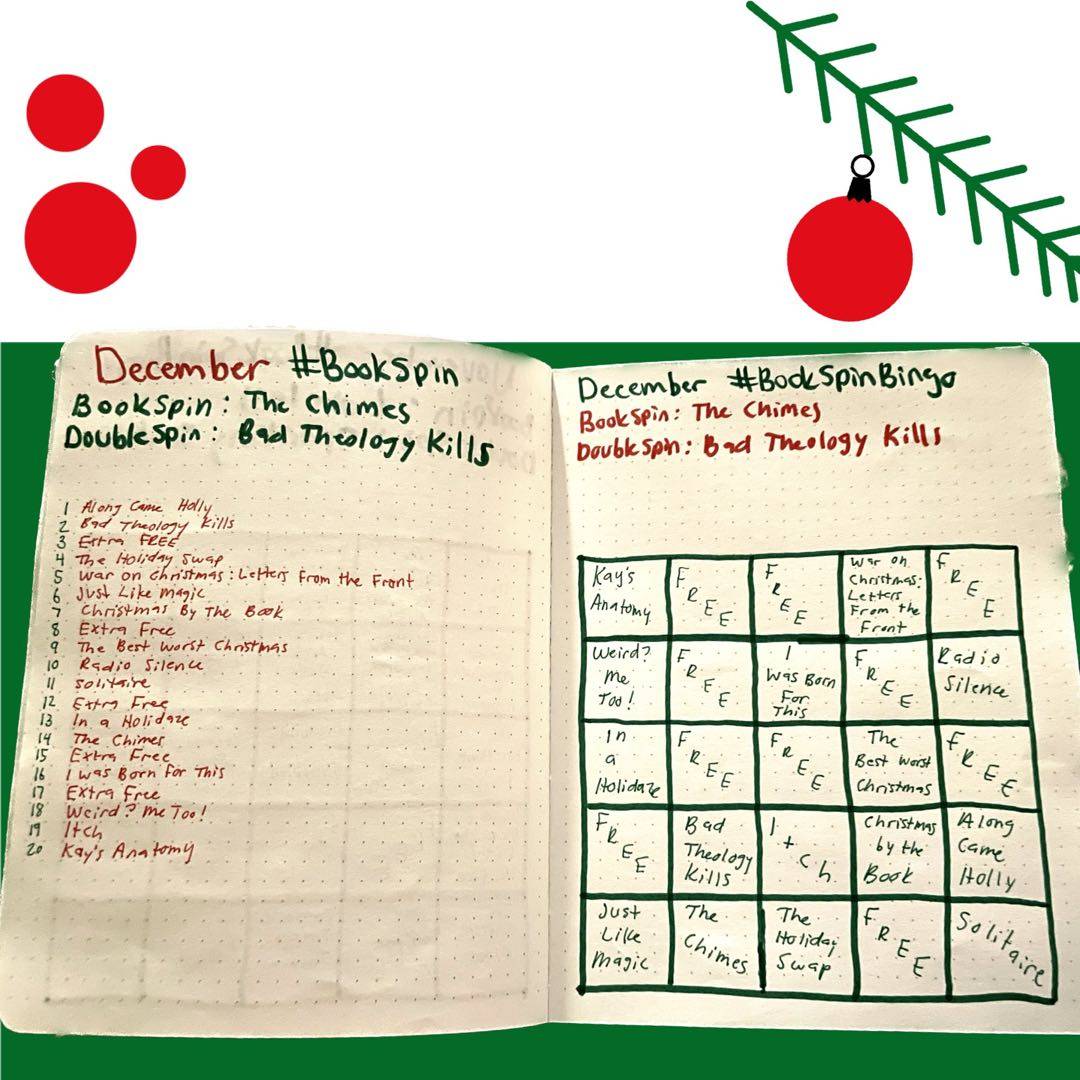 December #BookSpin
BookSpin: The Chimes
DoubleSpin: Bad Theology Kills
1 Along Came Holly
2 Bad Theology Kills
3 Extra FREE
4 The Holiday Swap
5 War on Christmas: Letters From the Front
6 Just Like Magic
7 Christmas By The Book
8 Extra Free
9 The Best Worst Christmas
10 Radio Silence
11 Solitaire
12 Extra Free
13 In a Holidaze
14 The Chimes
15 Extra Free
16 I was Born for This
17 Extra Free
18 Weird? Me Too!
19 Itch
20 Kay's Anatomy
December #BookSpinBingo
BookSpin: The Chimes
DoubleSpin: Bad Theology Kills
Kay's
Anatomy
FREE
FREE
War on
Christmas:
Letters
From the
Front
FREE
Weird?
Me
Too!
FREE
I
Was Born
For
This
FREE
Radio
Silence
In
a
Holidaze
FREE
FREE
The
Best Worst
Christmas
FREE
FREE
Bad
Theology
Kills
Itch
Christmas
by the
Book
Along
Came
Holly
Just
Like
Magic
The
Chimes
The
Holiday
Swap
FREE
Solitaire